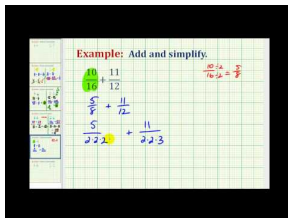 Example: Add and simplify.
10/16 + 11/12
10÷2/16÷2 = 5/8
5/8 + 11/12
5/2·2·2 + 11/2·2·3